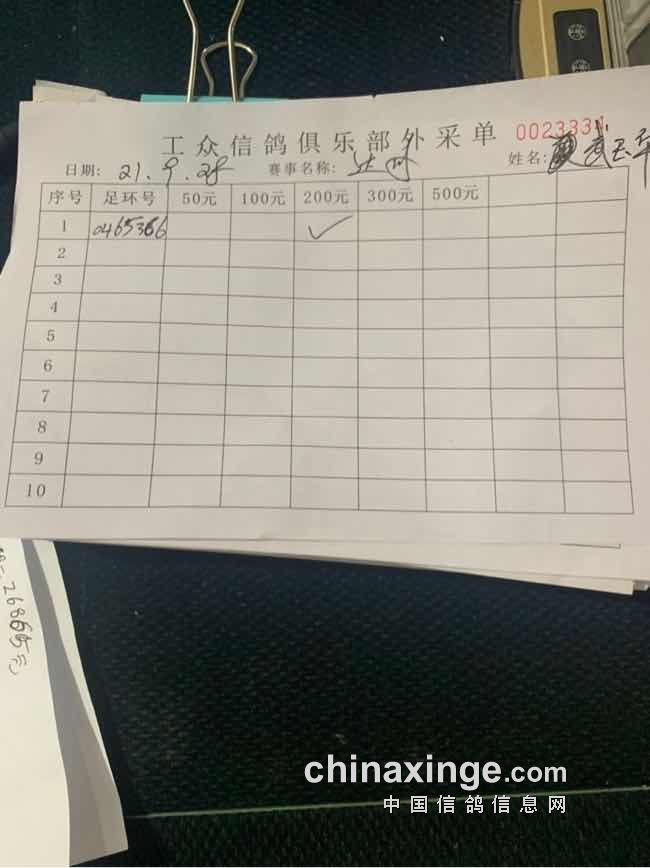 工众信鸽俱乐部外采单 0023331
日期: 21.9.28 赛事名称: 达州 姓名:
序号 足环号 50元 100元 200元 300元 500元
1 0465366 ✓
2
3
4
5
6
7
8
9
10
chinaxinge.com
中国信鸽信息网